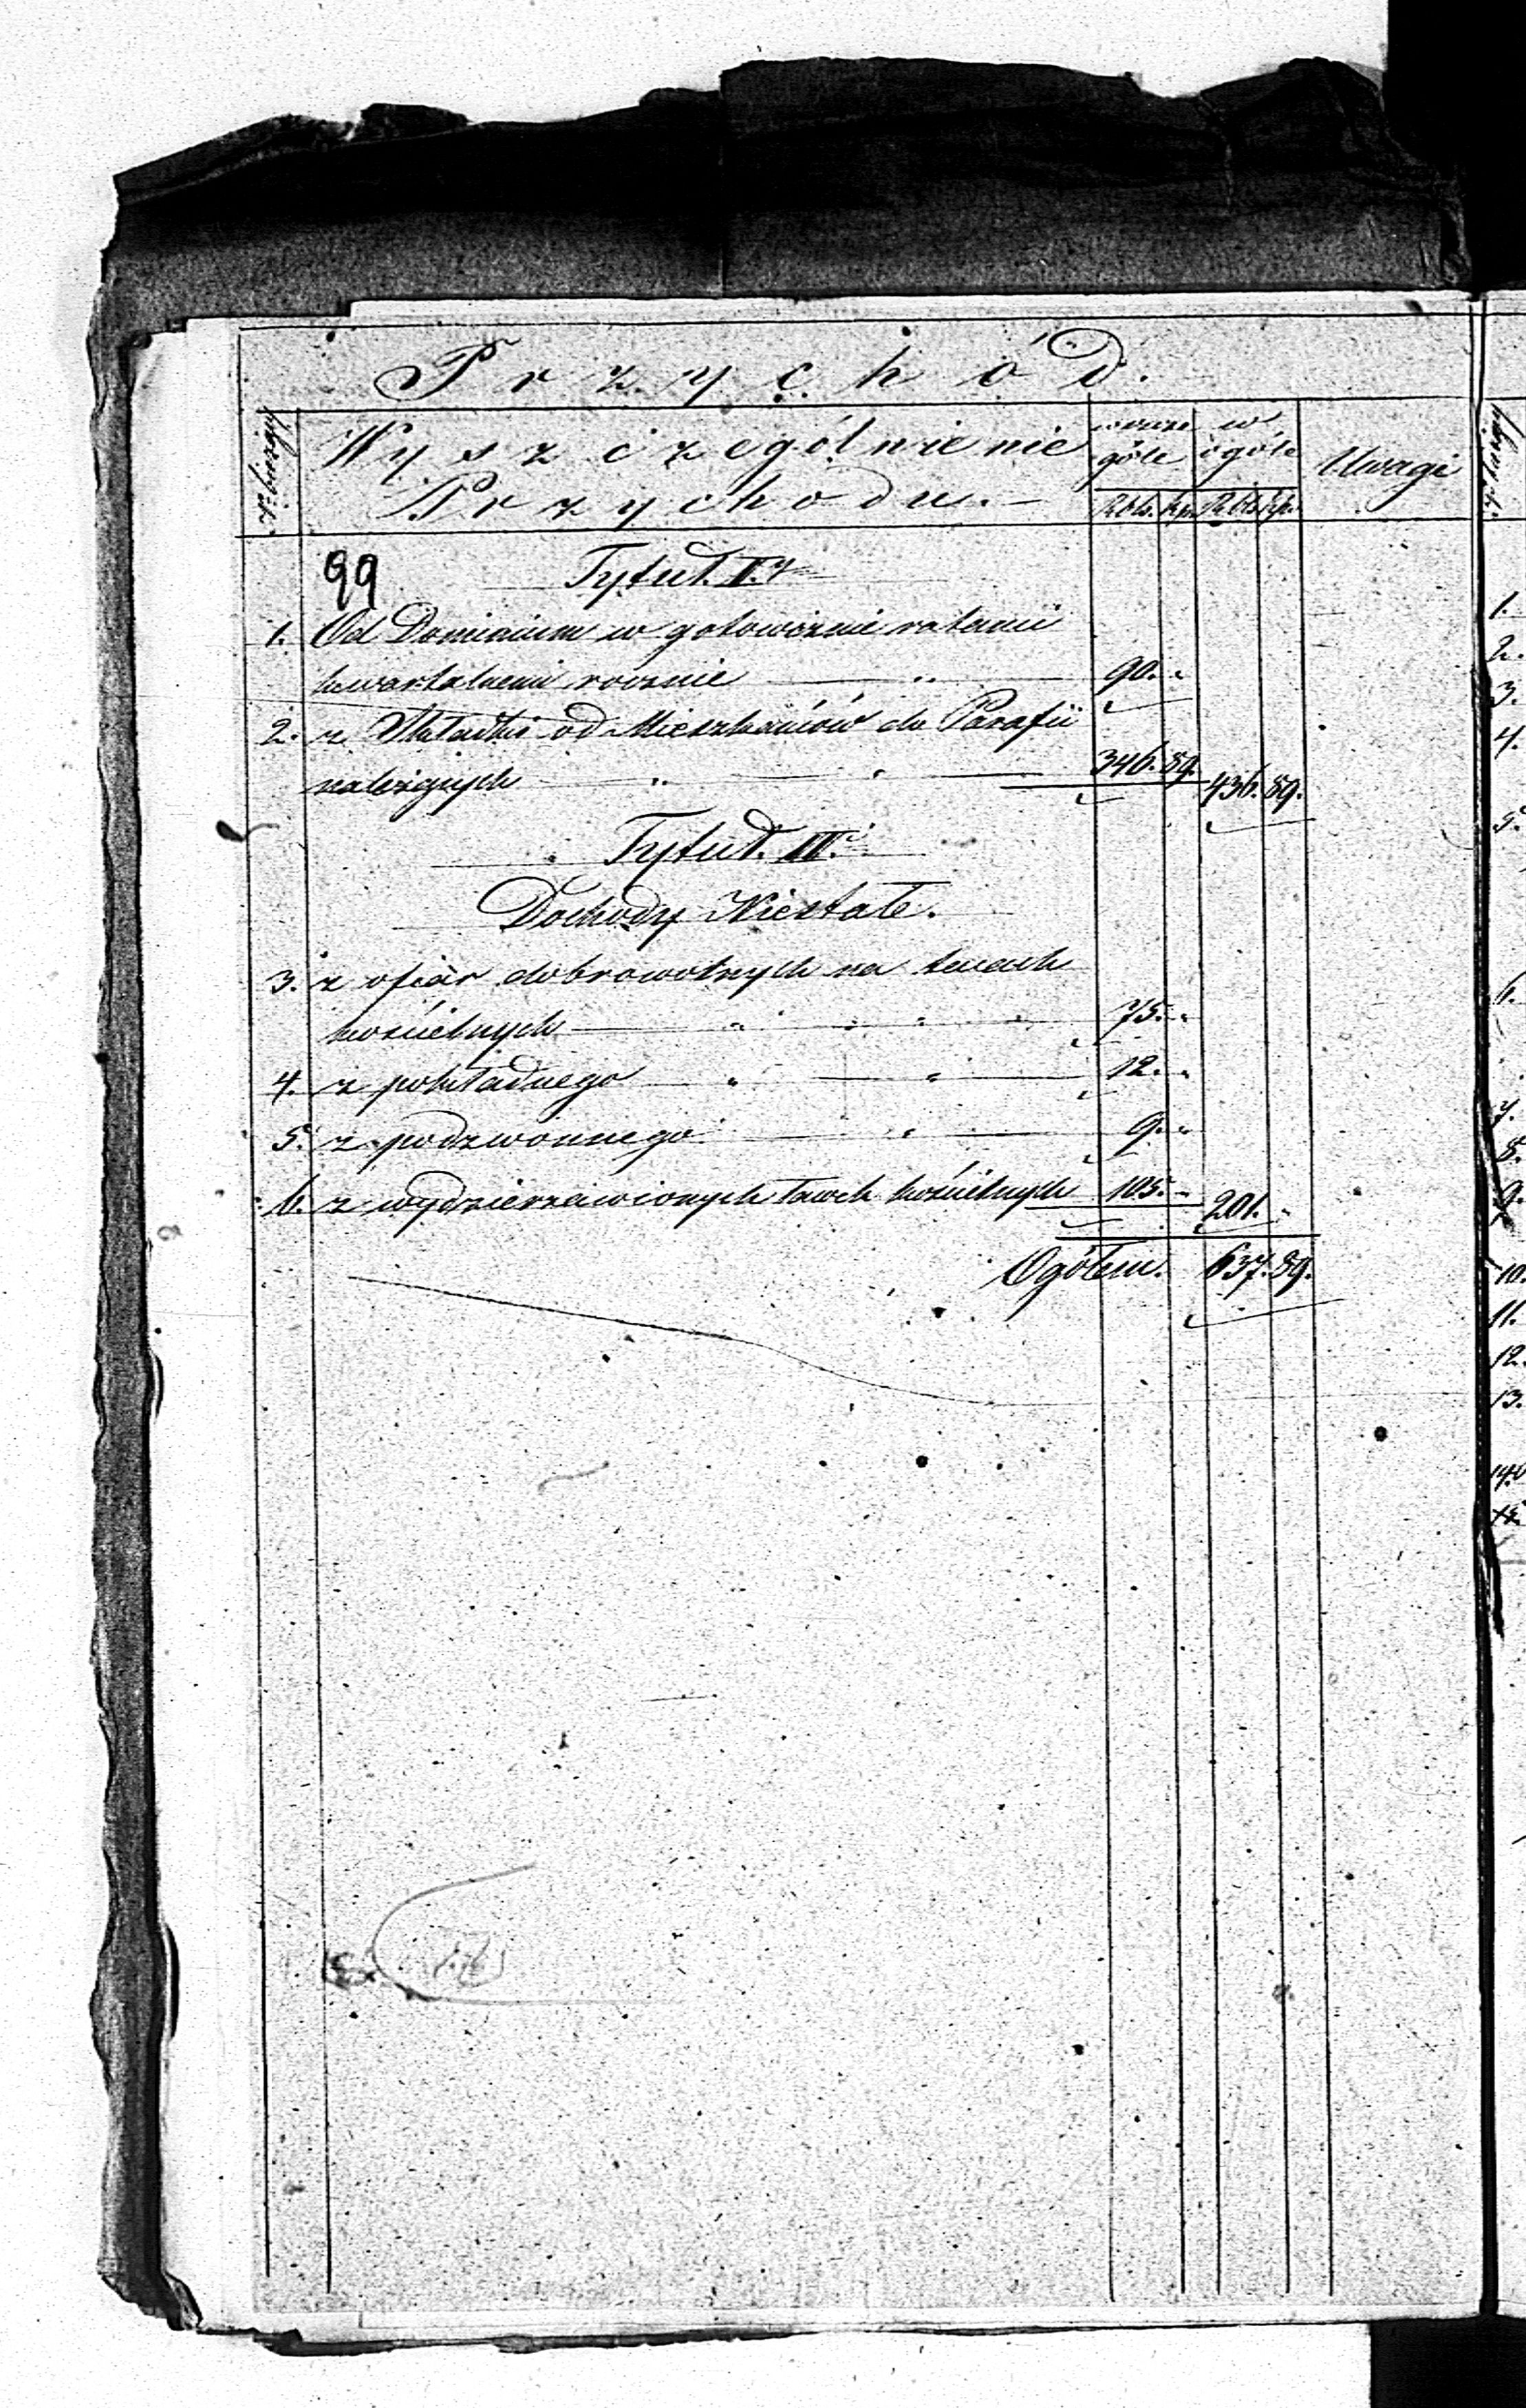 Przychód.
Nr bieżący
Wyszczególnienie
Przychodu.
w szcze
góle
w
ogóle
Uwagi
Rbls. kp. Rbls. kp.
99
Tytuł. I.y
1. Od Dominium w gotowiznie ratami
kwartalnemi rocznie 90. "
2. z Składki od Mieszkańców do Parafii
należących 346. 89. 436. 89.
Tytuł. II.i
Dochody Niestałe.
3. z ofiar dobrowolnych na tacach
kościelnych 75. "
4. z pokładnego 12. "
5. z podzwonnego 9. "
6. z wydzierżawionych ławek kościelnych 105. " 201. "
Ogółem. 637. 89.
1.
2.
3.
4.
5.
6.
7.
8.
9.
10.
11.
12.
13.
14.